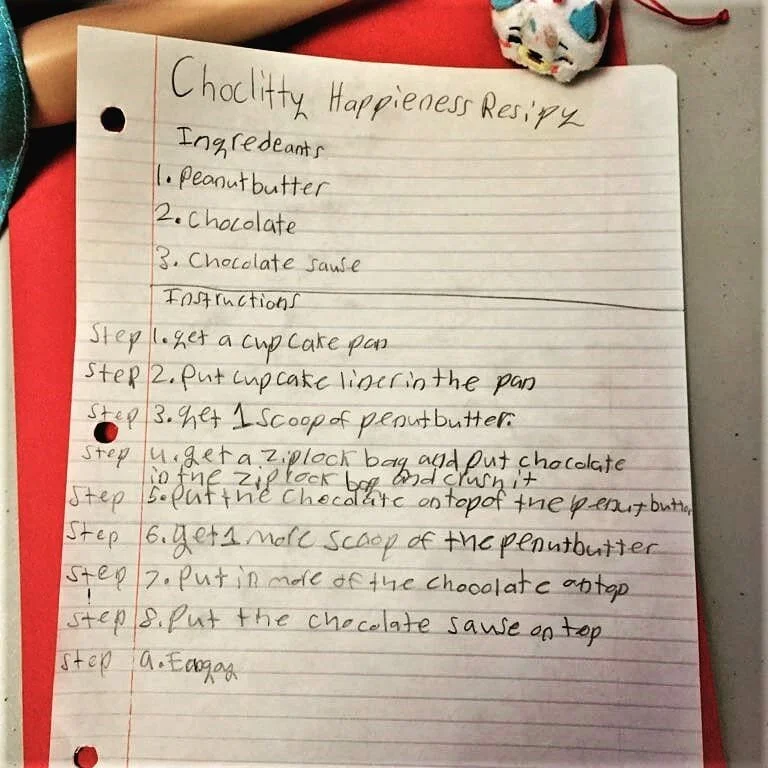 Choclitty Happieness Resipy
Ingredeants
1. Peanutbutter
2. Chocolate
3. Chocolate sause
Instructions
Step 1. get a cup cake pan
Step 2. Put cupcake liner in the pan
Step 3. get 1 scoop of penutbutter.
Step 4. get a ziplock bag and put chocolate
in the ziplock bag and crush it
Step 5. put the chocolate on top of the penutbutter
Step 6. get 1 more scoop of the penutbutter
Step 7. Put in more of the chocolate on top
Step 8. Put the chocolate sause on top
Step 9.